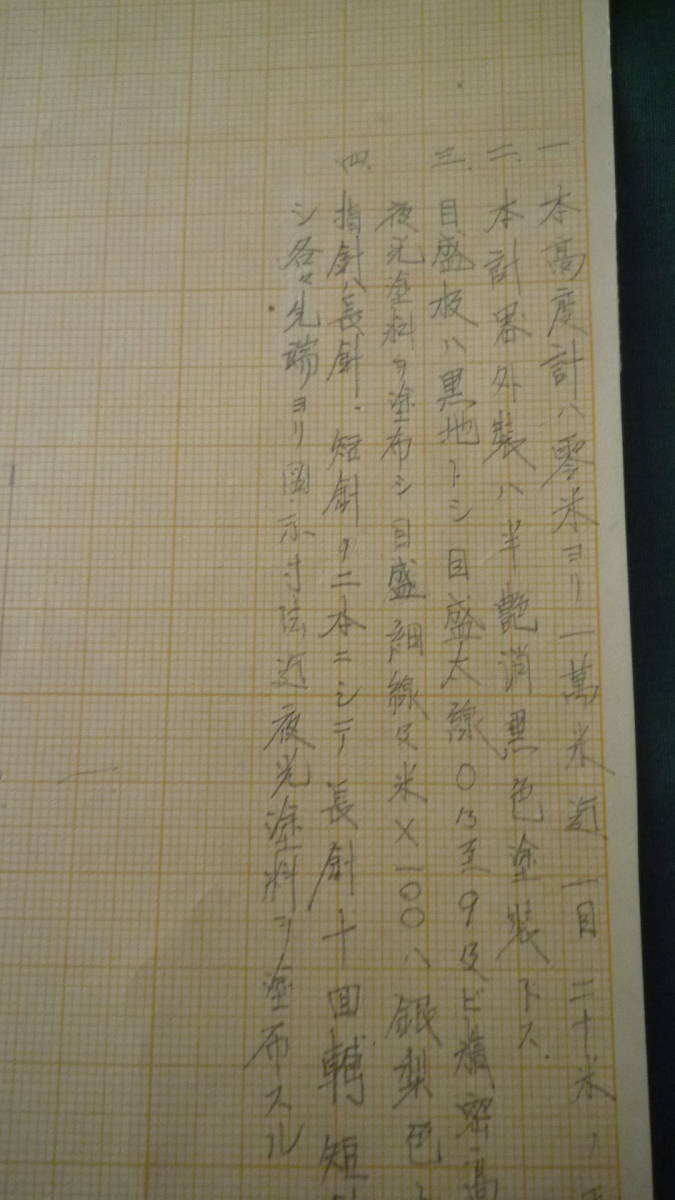 一 本高度計ハ零米ヨリ一萬米迠一目二十米ノ
二、本計器外装ハ半艶消黒色塗装トス.
三、目盛板ハ黒地トシ目盛太線0乃至9及ビ精密高
夜光塗料ヲ塗布シ目盛細線及米×100ハ銀梨色
四、指針ハ長針、短針ノ二本ニシテ長針十回轉短
シ各々先端ヨリ図示寸法迠夜光塗料ヲ塗布スル